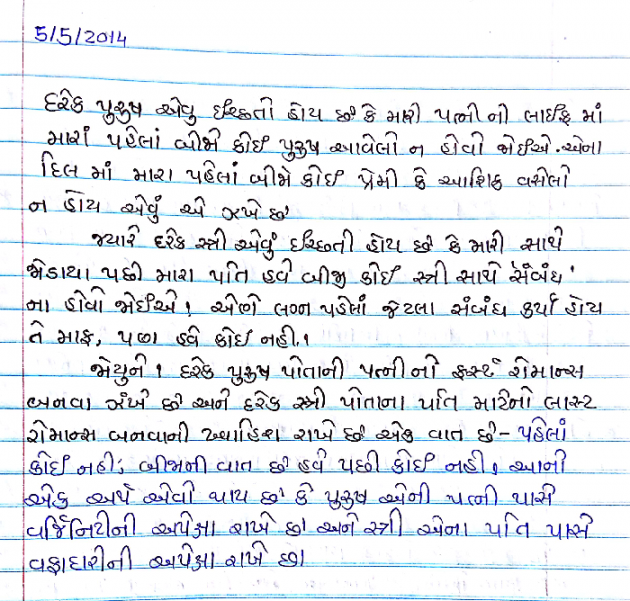 5/5/2014
દરેક પુરુષ એવુ ઈચ્છતો હોય છે કે મારી પત્ની ની લાઈફ માં
મારાં પહેલાં બીજો કોઈ પુરુષ આવેલો ન હોવો જોઈએ. એના
દિલ માં મારા પહેલાં બીજો કોઈ પ્રેમી કે આશિક વસેલો
ન હોય એવું એ ઝંખે છે
જ્યારે દરેક સ્ત્રી એવું ઈચ્છતી હોય છે કે મારી સાથે
જોડાયા પછી મારા પતિ હવે બીજી કોઈ સ્ત્રી સાથે સંબંધ
ના હોવો જોઈએ! એણે લગ્ન પહેલાં જેટલા સંબંધ કર્યા હોય
તે માફ, પણ હવે કોઈ નહી.!
જોયુને! દરેક પુરુષ પોતાની પત્નીનો ફર્સ્ટ રોમાન્સ
બનવા ઝંખે છે અને દરેક સ્ત્રી પોતાના પતિ માટેનો લાસ્ટ
રોમાન્સ બનવાની ખ્વાહિશ રાખે છે એક વાત છે - પહેલાં
કોઈ નહી; બીજાની વાત છે હવે પછી કોઈ નહી! આનો
એક અર્થ એવો થાય છે કે પુરુષ એની પત્ની પાસે
વર્જિનિટીની અપેક્ષા રાખે છે અને સ્ત્રી એના પતિ પાસે
વફાદારીની અપેક્ષા રાખે છે।